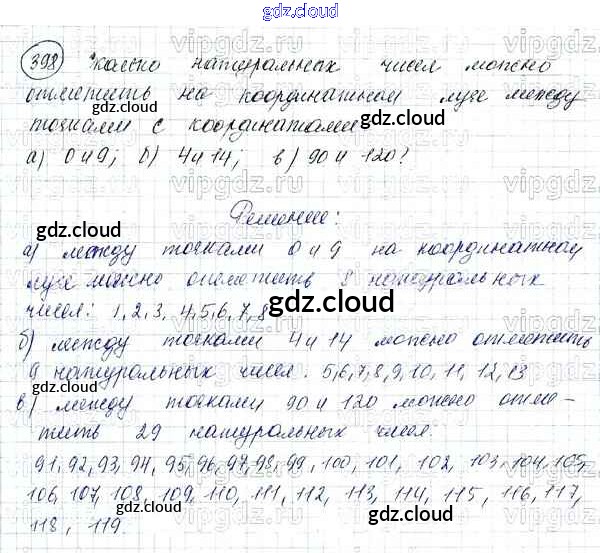 gdz.cloud
398 Сколько натуральных чисел можно
отметить на координатном луче между
точками с координатами
а) 0 и 9; б) 4 и 14; в) 90 и 120?
gdz.cloud
Решение:
а) между точками 0 и 9 на координатном
луче можно отметить 8 натуральных
чисел: 1, 2, 3, 4, 5, 6, 7, 8
gdz.cloud
б) между точками 4 и 14 можно отметить
9 натуральных чисел: 5, 6, 7, 8, 9, 10, 11, 12, 13
в) между точками 90 и 120 можно отме-
тить 29 натуральных чисел:
91, 92, 93, 94, 95, 96, 97, 98, 99, 100, 101, 102, 103, 104, 105,
106, 107, 108, 109, 110, 111, 112, 113, 114, 115, 116, 117,
118, 119.
gdz.cloud